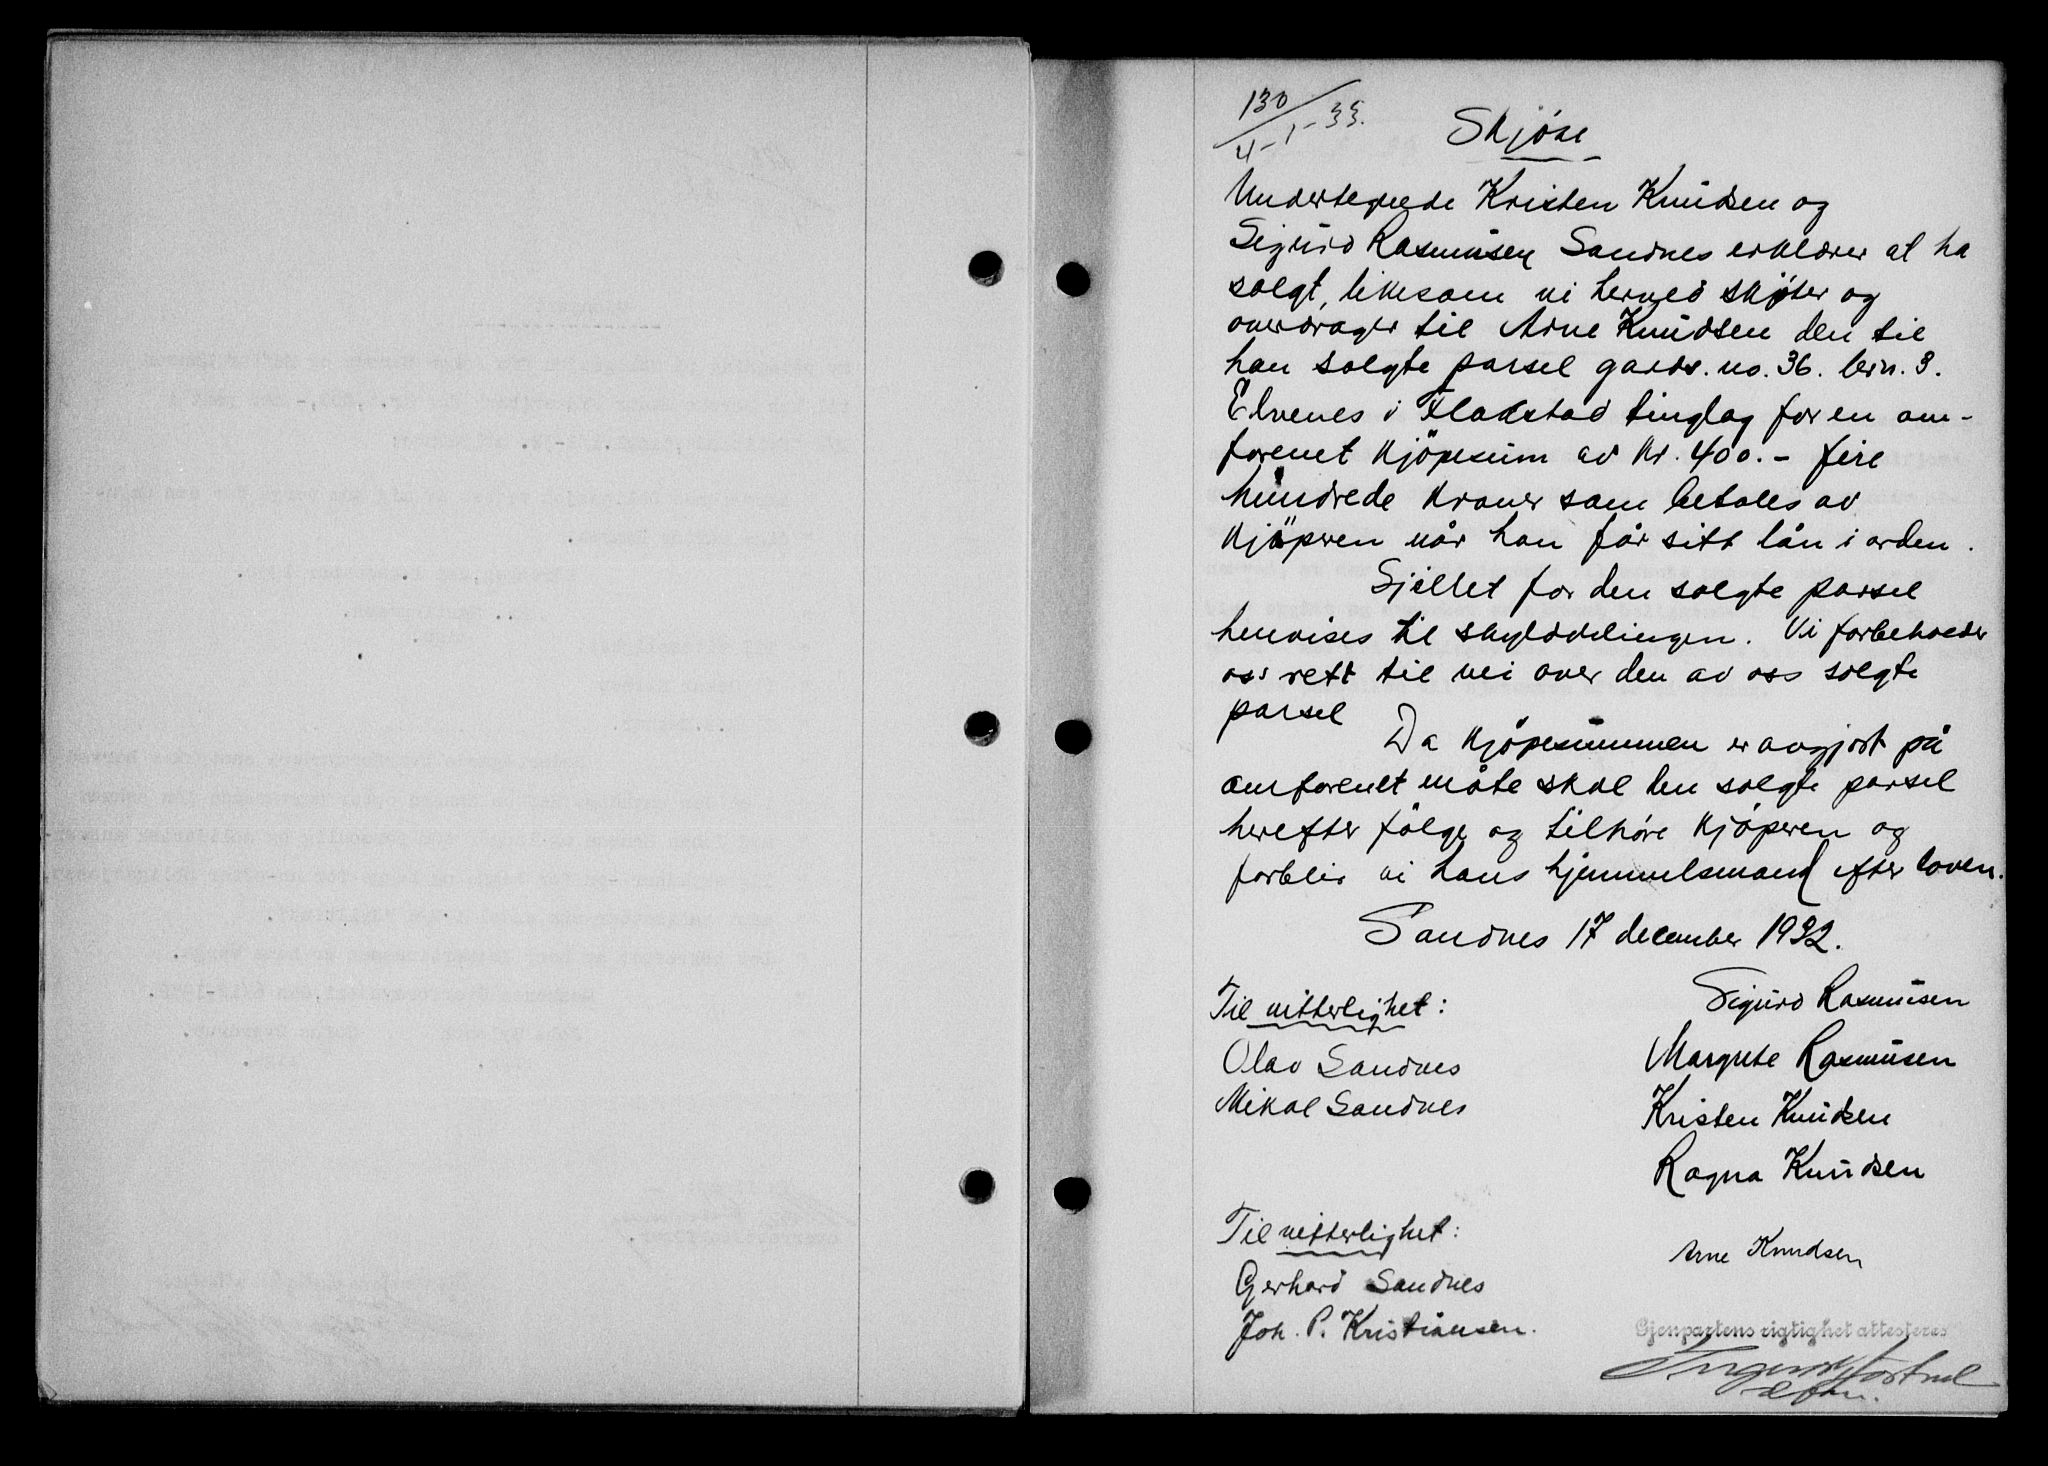 130/4-1-33.
Skjöte
Undertegnede Kristen Knudsen og
Sigurd Rasmusen Sandnes erklærer at ha
solgt, likesom vi herved skjöter og
overdrager til Arne Knudsen den til
han solgte parsel gards. no. 36. brn. 3.
Elvenes i Flakstad tinglag for en om-
forenet kjöpesum av kr. 400.- fire
hundrede kroner som betales av
kjöperen når han får sitt lån i orden.
Sjillet for den solgte parsel
henvises til skylddelingen. Vi forbeholder
oss rett til vei over den av oss solgte
parsel
Da kjöpesummen er avgjort på
omforenet måte skal den solgte parsel
herefter fölge og tilhöre kjöperen og
forblir vi hans hjemmelsmand efter loven.
Sandnes 17 december 1932.
Til vitterlighet:
Olav Sandnes
Mikal Sandnes
Sigurd Rasmusen
Margrete Rasmusen
Kristen Knudsen
Ragna Knudsen
Til vitterlighet:
Gerhard Sandnes
Joh. P. Kristiansen.
Arne Knudsen
Gjenpartens rigtighet attesteres